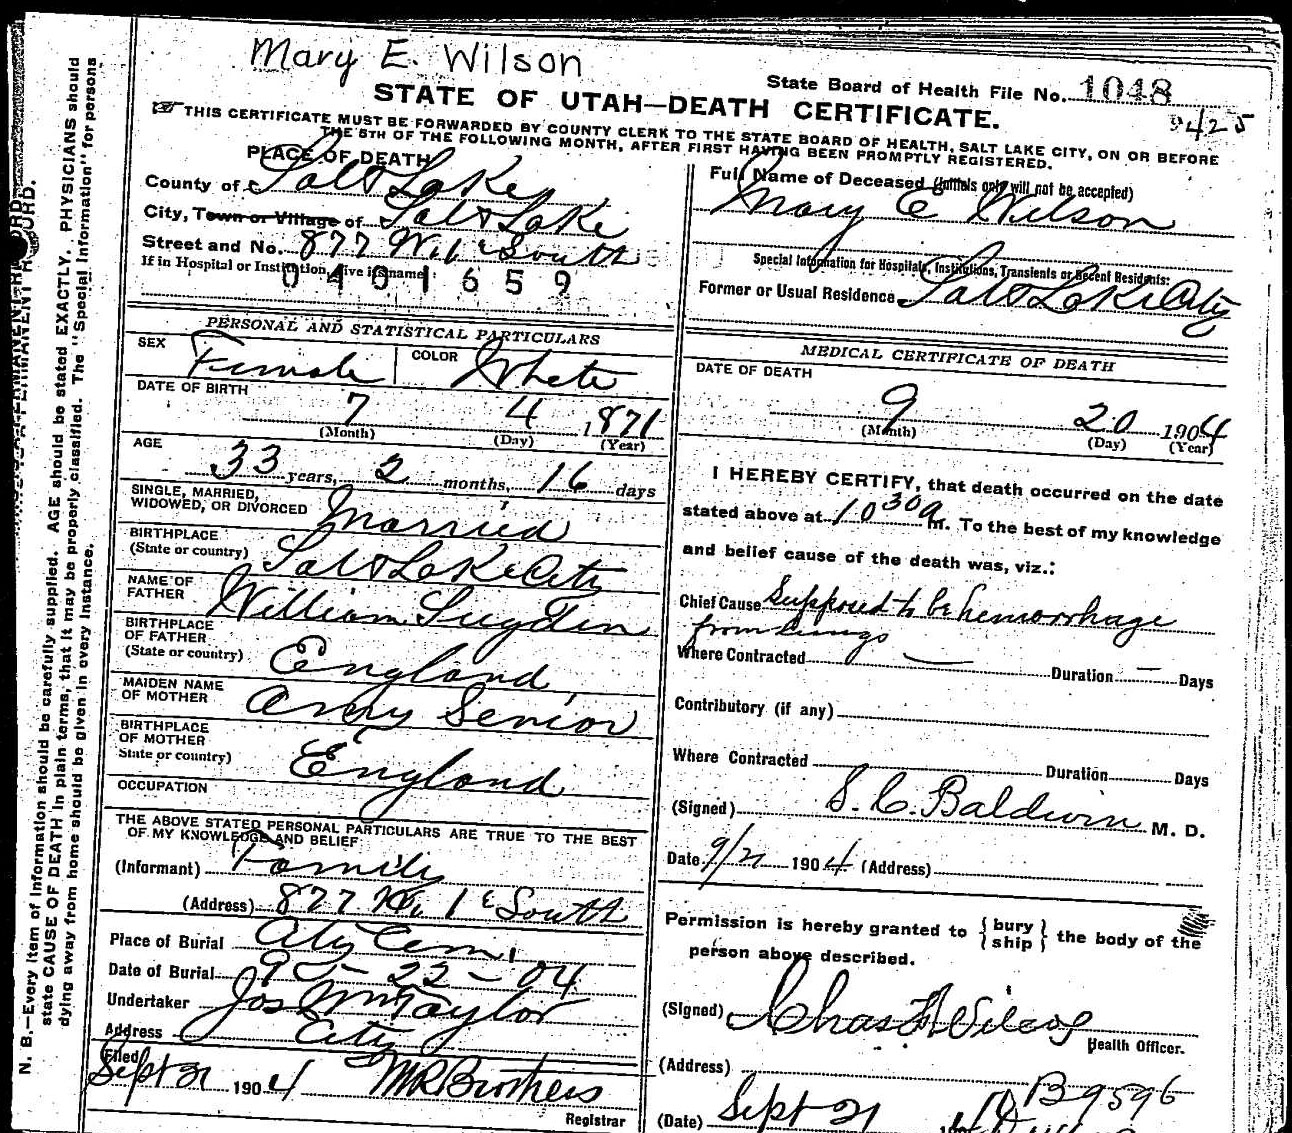 Mary E. Wilson
State Board of Health File No. 1048
9425
STATE OF UTAH—DEATH CERTIFICATE.
THIS CERTIFICATE MUST BE FORWARDED BY COUNTY CLERK TO THE STATE BOARD OF HEALTH, SALT LAKE CITY, ON OR BEFORE
THE 5TH OF THE FOLLOWING MONTH, AFTER FIRST HAVING BEEN PROMPTLY REGISTERED.
PLACE OF DEATH
County of Salt Lake
City, Town or Village of Salt Lake
Street and No. 877 W 1st South
If in Hospital or Institution, give its name:
0401659
Full Name of Deceased (Initials only will not be accepted)
Mary E Wilson
Special Information for Hospitals, Institutions, Transients or Recent Residents:
Former or Usual Residence Salt Lake City
PERSONAL AND STATISTICAL PARTICULARS
SEX Female COLOR White
DATE OF BIRTH
7 4 1871
(Month) (Day) (Year)
AGE
33 years, 2 months, 16 days
SINGLE, MARRIED,
WIDOWED, OR DIVORCED Married
BIRTHPLACE
(State or country) Salt Lake City
NAME OF
FATHER William Sugden
BIRTHPLACE
OF FATHER
(State or country) England
MAIDEN NAME
OF MOTHER Amy Senior
BIRTHPLACE
OF MOTHER
State or country) England
OCCUPATION
THE ABOVE STATED PERSONAL PARTICULARS ARE TRUE TO THE BEST
OF MY KNOWLEDGE AND BELIEF
(Informant) Family
(Address) 877 W 1st South
Place of Burial City Cem.
Date of Burial 9 - 22 - 04
Undertaker Jos Wm Taylor
Address City
Filed
Sept 21 1904 M R Brothers
Registrar
MEDICAL CERTIFICATE OF DEATH
DATE OF DEATH
9 20 1904
(Month) (Day) (Year)
I HEREBY CERTIFY, that death occurred on the date
stated above at 10 30 a m. To the best of my knowledge
and belief cause of the death was, viz.:
Chief Cause Supposed to be hemorrhage
from lungs
Where Contracted — Duration — Days
Contributory (if any)
Where Contracted Duration Days
(Signed) S. C. Baldwin M. D.
Date 9/21 1904 (Address)
Permission is hereby granted to { bury } the body of the
{ ship }
person above described.
(Signed) Chas F Wilcox
Health Officer.
(Address)
B9596
(Date) Sept 21
N. B.—Every item of information should be carefully supplied. AGE should be stated EXACTLY. PHYSICIANS should
state CAUSE OF DEATH in plain terms, that it may be properly classified. The "Special Information" for persons
dying away from home should be given in every instance.
PERMANENT RECORD.